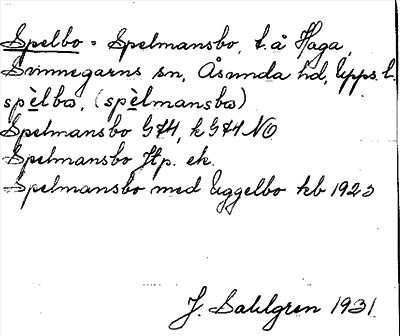 Spelbo = Spelmansbo, t. å Haga,
Svinnegarns sn, Åsunda hd, Upps. l.
spèlbo, (spèlmansbo)
Spelmansbo G74, k G74 NO
Spelmansbo Jtp. ek.
Spelmansbo med Uggelbo kb 1923
J. Sahlgren 1931